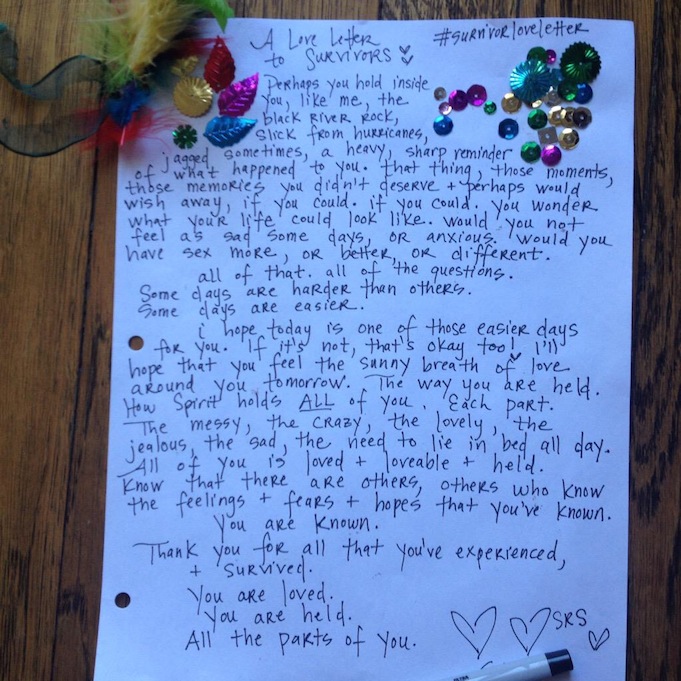 #survivorloveletter
A Love Letter
to Survivors
Perhaps you hold inside
you, like me, the
black river rock,
slick from hurricanes,
jagged sometimes, a heavy, sharp reminder
of what happened to you. that thing, those moments,
those memories you didn't deserve + perhaps would
wish away, if you could. if you could. you wonder
what your life could look like. would you not
feel as sad some days, or anxious. would you
have sex more, or better, or different.
all of that. all of the questions.
Some days are harder than others.
Some days are easier.
i hope today is one of those easier days
for you. If it's not, that's okay too! I'll
hope that you feel the sunny breath of love
around you tomorrow. The way you are held.
How Spirit holds ALL of you. Each part.
The messy, the crazy, the lovely, the
jealous, the sad, the need to lie in bed all day.
All of you is loved + loveable + held.
Know that there are others, others who know
the feelings + fears + hopes that you've known.
You are known.
Thank you for all that you've experienced,
+ survived.
You are loved.
You are held.
All the parts of you.
SRS